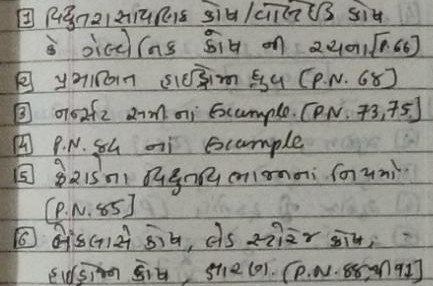 1 વિદ્યુતરાસાયણિક કોષ / વોલ્ટેઈક કોષ
કે ગેલ્વેનિક કોષ ની રચના [P.66]
2 પ્રમાણિત હાઈડ્રોજન ધ્રુવ [P.N. 68]
3 નર્ન્સ્ટ સમી નાં Example. [P.N. 73,75]
4 P.N. 84 નાં Example
5 ફેરાડેના વિદ્યુતવિભાજનનાં નિયમો
[P.N.85]
6 લેકલાન્સે કોષ, લેડ સ્ટોરેજ કોષ,
હાઈડ્રોજન કોષ, ક્ષારણ. [P.N.88, થી 92]